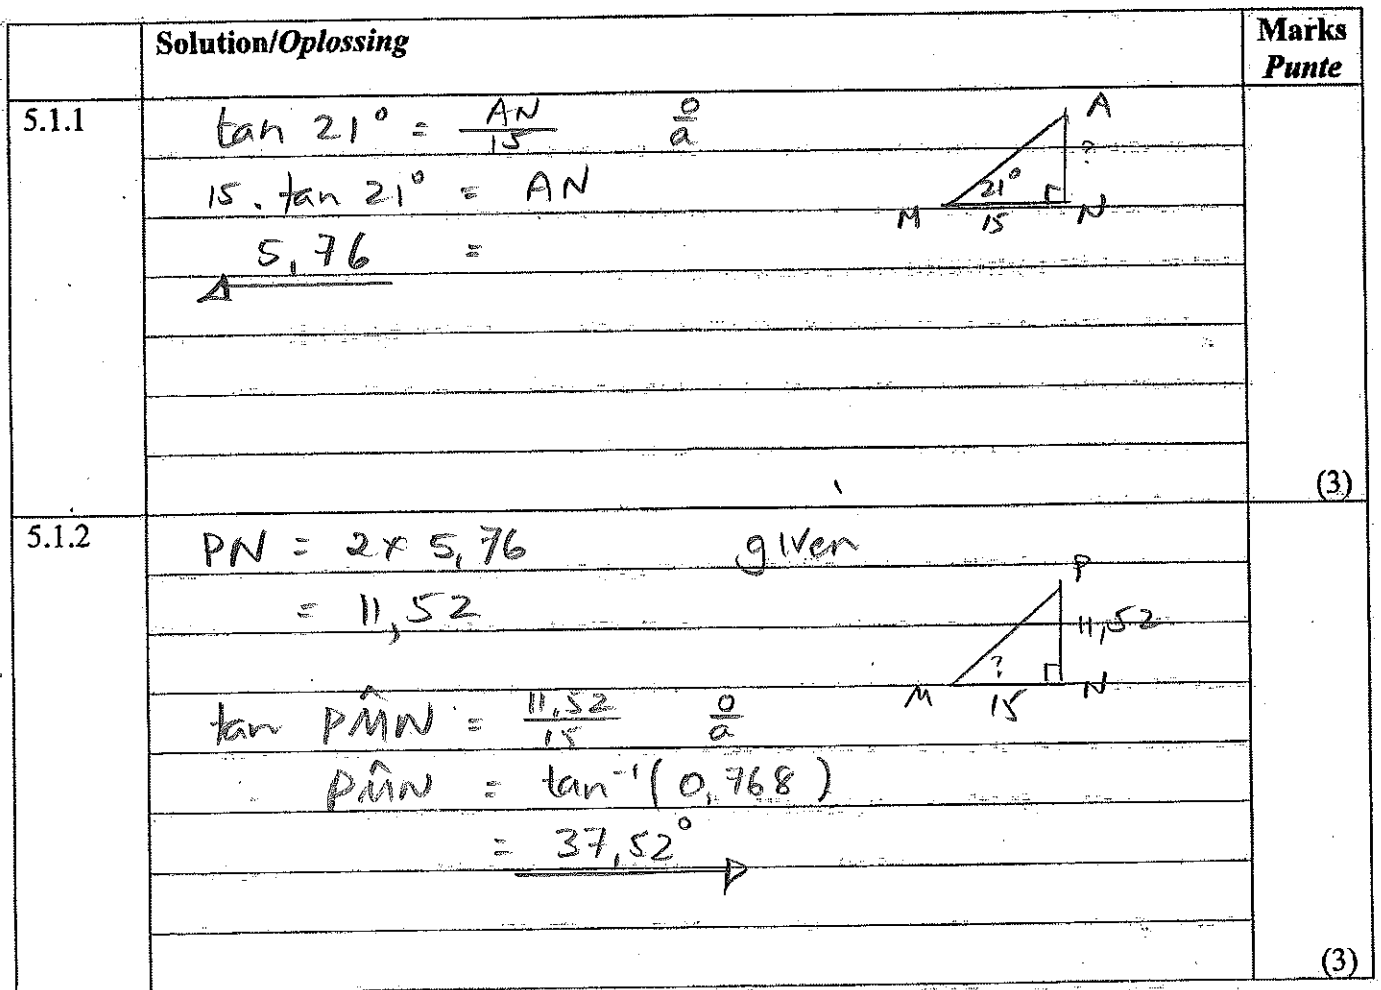 Solution/Oplossing
Marks
Punte
5.1.1
tan 21° = AN/15 o/a
15 . tan 21° = AN
5,76 =
A
?
21°
M 15 N
(3)
5.1.2
PN = 2 x 5,76 given
= 11,52
P
11,52
?
M 15 N
tan PM̂N = 11,52/15 o/a
PM̂N = tan⁻¹(0,768)
= 37,52°
(3)